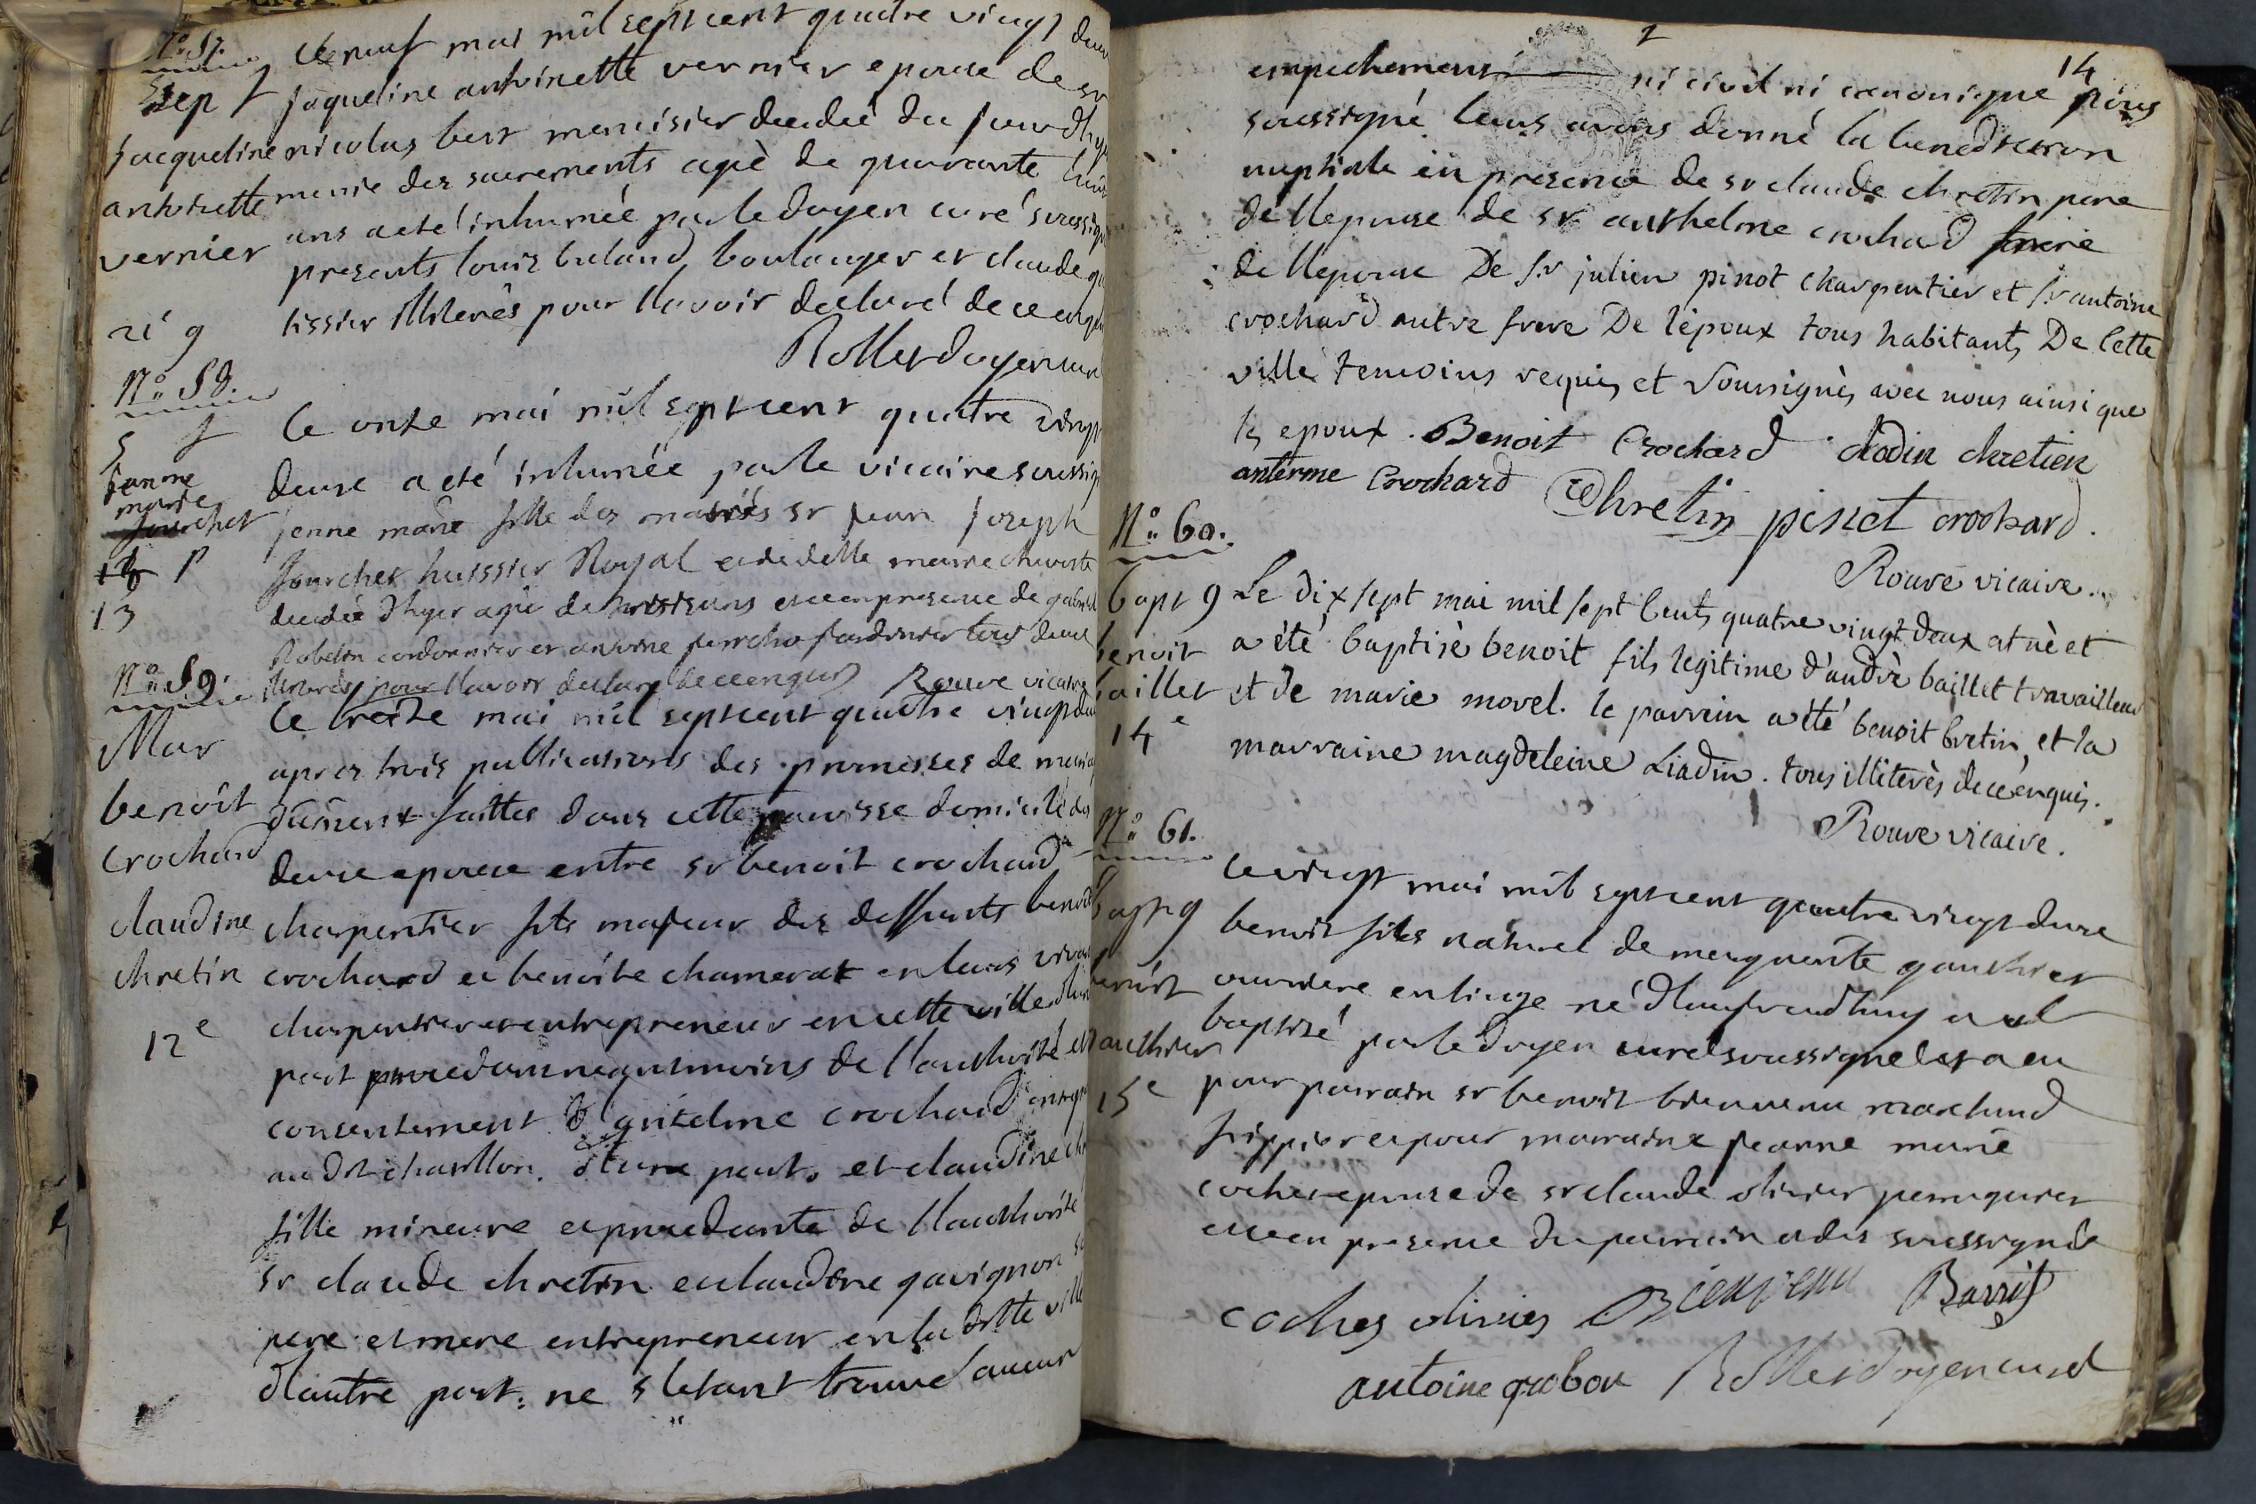 N° 57.
sep f
jacqueline
antoinette
vernier
21 9
Le neuf mai mil sept cent quatre vingt deux
jaqueline antoinette vernier epouse de sr
nicolas menuisier decedée du jourdhyer
munie des sacrements agè de quarante huit
ans a eté inhumée par le doyen curé soussigné
presents louis boulanger et claude
tissier illiterès pour l'avoir declaré de ce enquis
Rollet doyen curé
N° 58.
S f
jeanne
marie
fourcher
13
Le onze mai mil sept cent quatre vingt
deux a eté inhumée par le vicaire soussigné
jenne marie fille des mariés sr jean joseph
fourcher huissier Royal et de delle marie
decedée d'hyer agée de et ce en presence de gabriel
Robelin cordonnier et antoine jardinier tous deux
illiterés pour l'avoir declaré de ce enquis Rouve vicaire
N° 59.
Mar
benoît
Crochard
claudine
chretin
12e
Le treize mai mil sept cent quatre vingt deux
apres trois publications des promesses de mariage
dûment faittes dans cette paroisse domicile des
deux epoux entre sr benoit crochard
charpentier fils majeur des deffunts benoit
crochard et benoite chamerat en leurs vivants
charpentier et entrepreneur en cette ville d'une
part procedant neanmoins de l'authorité et
consentement d'antelme crochard
au dit chatillon. d'une part. et claudine
fille mineure et procedante de l'authorité
sr claude chretin et claudine gavignon
pere et mere entrepreneur en la ditte ville
d'autre part. ne s'etant trouvé aucun
14
empechement ni civil ni canonique nous
soussigné leurs avons donné la benediction
nuptiale en presence de sr claude chretin pere
de l'epouse de sr anthelme crochard frere
de l'epoux De sr julien pinot charpentier et sr antoine
crochard autre frere De l'époux tous habitants De Cette
ville temoins requis et soussignès avec nous ainsi que
les epoux. Benoit Crochard clodin chretien
anterme Crochard Chretin pinet crochard.
Rouve vicaire..
N° 60.
bapt 9
benoit
baillet
14e
Le dix sept mai mil sept Cents quatre vingt deux est nè et
a été baptisè benoit fils legitime d'andrè baillet travailleur
et de marie morel. le parrein a été benoit bretin et la
marraine magdeleine Liadin. tous illiterès de ce enquis.
Rouve vicaire.
N° 61.
bapt 9
benoit
gauthier
15e
Le vingt mai mil sept cent quatre vingt deux
benoit fils naturel de marguerite gauthier
ouvriere en linge né d'aujourdhuy a eté
baptisé par le doyen curé soussigné et a eu
pour parrain sr benoit bienvenu marchand
frippier et pour marraine jeanne marie
coches epouse de sr claude olivier perruquier
et ce en presence du parrain et des soussignés
coches olivier Bienvenu Barrit
antoine grobou Rollet doyen curé